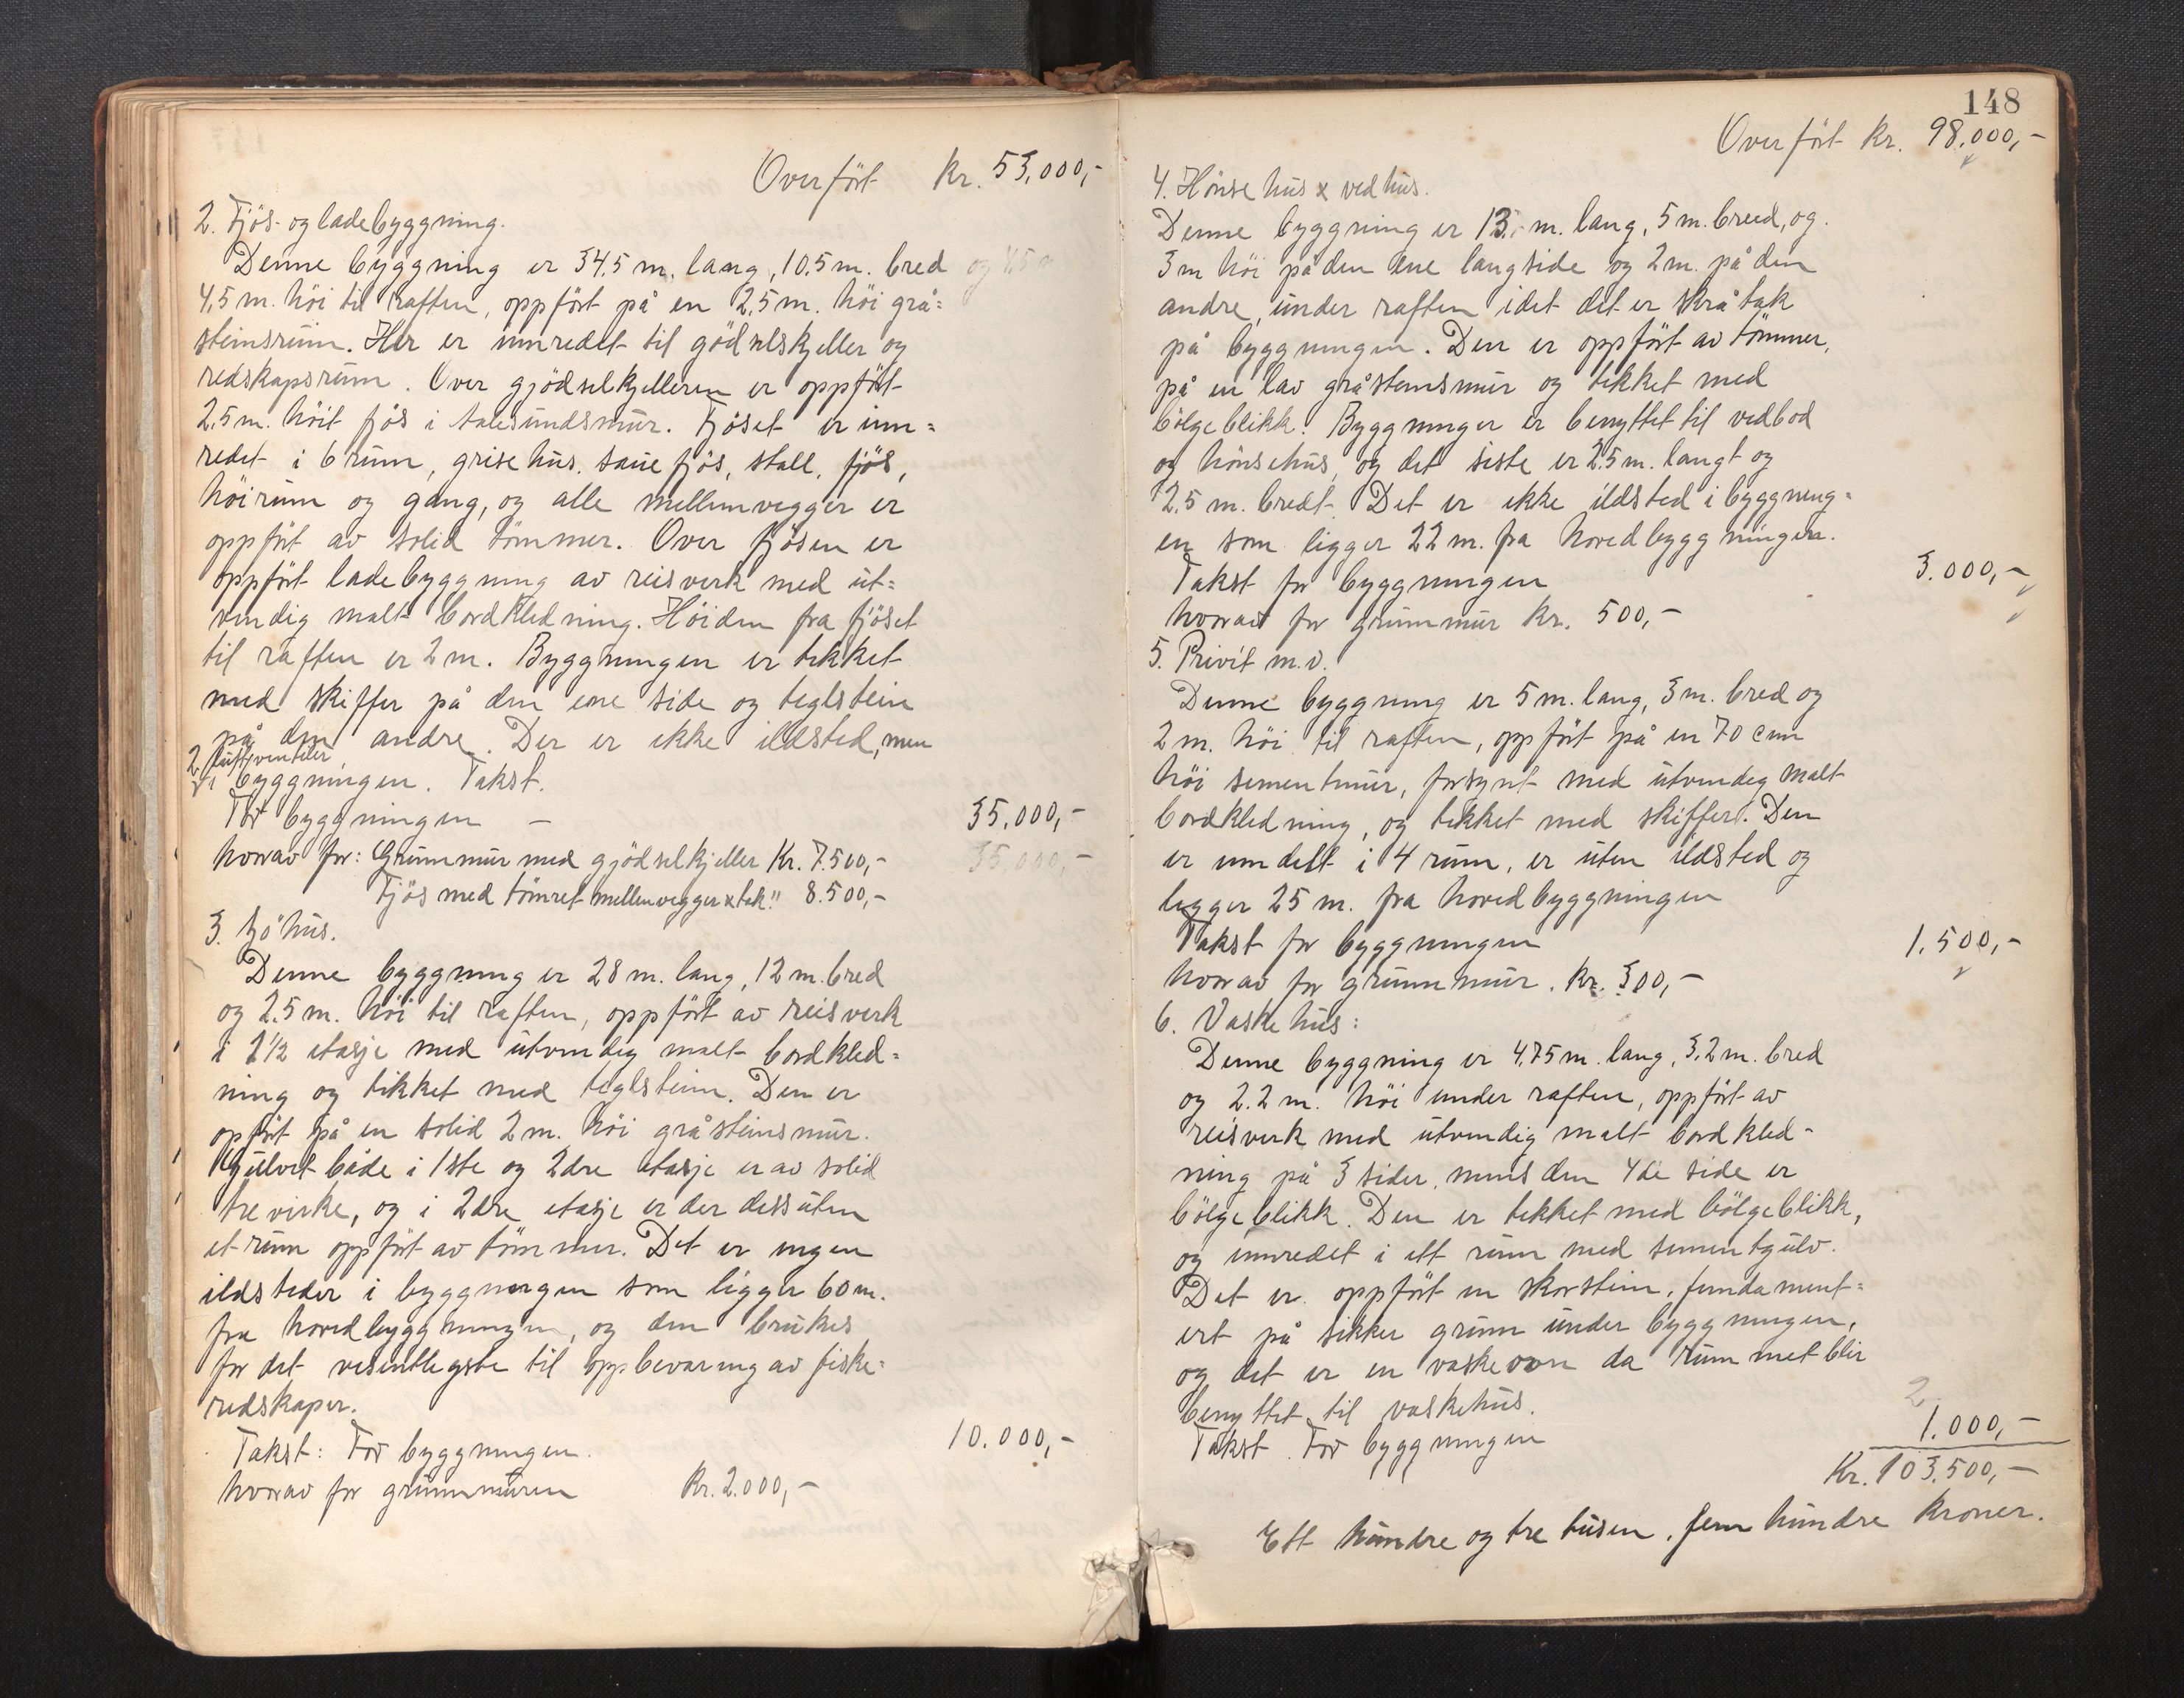 Overfört Kr. 53,000,-
2. Fjös- og ladebyggning.
Denne byggning er 34.5 m. lang, 10.5 m. bred
4,5 m. höi til raften, oppfört på en 2,5 m. höi grå=
steinsrum. Her er innredet til gödselskjeller og
redskapsrum. Over gjödselkjelleren er oppfört
2,5 m. höit fjös i Aalesundsmur. Fjöset er inn=
redet i 6 rum, grisehus, sauefjös, stall, fjös,
höirum og gang, og alle mellemvegger er
oppfört av solid tömmer. Over fjösen er
oppfört ladebyggning av reisverk med ut=
vendig malt bordkledning. Höiden fra fjöset
til raften er 2 m. Byggningen er tekket
med skiffer på den ene side og teglstein
på den andre. Der er ikke ildsted, men
2 luftventiler
i byggningen. Takst.
For byggningen - 35.000,-
hvorav for: Grunnmur med gjödselkjeller Kr. 7.500,- 35.000,-
Fjös med tömret mellemvegger & tak " 8.500,-
3. Sjöhus.
Denne byggning er 28 m. lang, 12 m. bred
og 2.5 m. höi til raften, oppfört av reisverk
i 1 1/2 etasje med utvendig malt bordkled=
ning og tekket med teglstein. Den er
opfört på en solid 2 m. höi gråsteinsmur.
Gulvet både i 1ste og 2dre etasje er av solid
trevirke, og i 2dre etasje er der dessuten
et rum oppfört av tömmer. Det er ingen
ildsteder i byggningen som ligger 60 m.
fra hovedbyggningen, og den brukes
for det vesentlegste til oppbevaring av fiske=
redskaper.
Takst: For byggningen. 10.000,-
hvorav for grunnmuren Kr. 2.000,-
148
Overfört Kr. 98.000,-
4. Hönsehus & vedhus.
Denne byggning er 13,- m. lang, 5 m. breed, og
3 m höi på den ene langside og 2 m. på den
andre, under raften idet det er skråtak
på byggningen. Den er oppfört av tömmer,
på en lav gråsteinsmur og tekket med
bölgeblikk. Byggningen er benyttet til vedbod
og hönsehus, og det siste er 2.5 m. langt og
2.5 m. bredt. Det er ikke ildsted i byggning=
en som ligger 22 m. fra hovedbyggningen.
Takst for byggningen 3.000,-
hvorav for grunnmur Kr. 500,-
5. Privét m.v.
Denne byggning er 5 m. lang, 3 m. bred og
2 m. höi til raften, oppfört på en 70 cm
höi sementmur, forsynt med utvendig malt
bordkledning, og tekket med skiffer. Den
er inndelt i 4 rum, er uten ildsted og
ligger 25 m. fra hovedbyggningen
Takst for byggningen 1.500,-
hvorav for grunnmur. Kr. 300,-
6. Vaskehus:
Denne byggning er 4,75 m. lang, 3,2 m. bred
og 2.2 m. höi under raften, oppfört av
reisverk med utvendig malt bordkled-
ning på 3 sider, mens den 4de side er
bölgeblikk. Den er tekket med bölgeblikk,
og innredet i ett rum med sementgulv.
Det er oppfört en skorstein, fundament=
ert på sikker grunn under byggningen,
og det er en vaskeovn da rummet blir
benyttet til vaskehus. 2
Takst. For byggningen 1.000,-
Kr. 103.500,-
Ett hundre og tre tusen, fem hundre kroner.